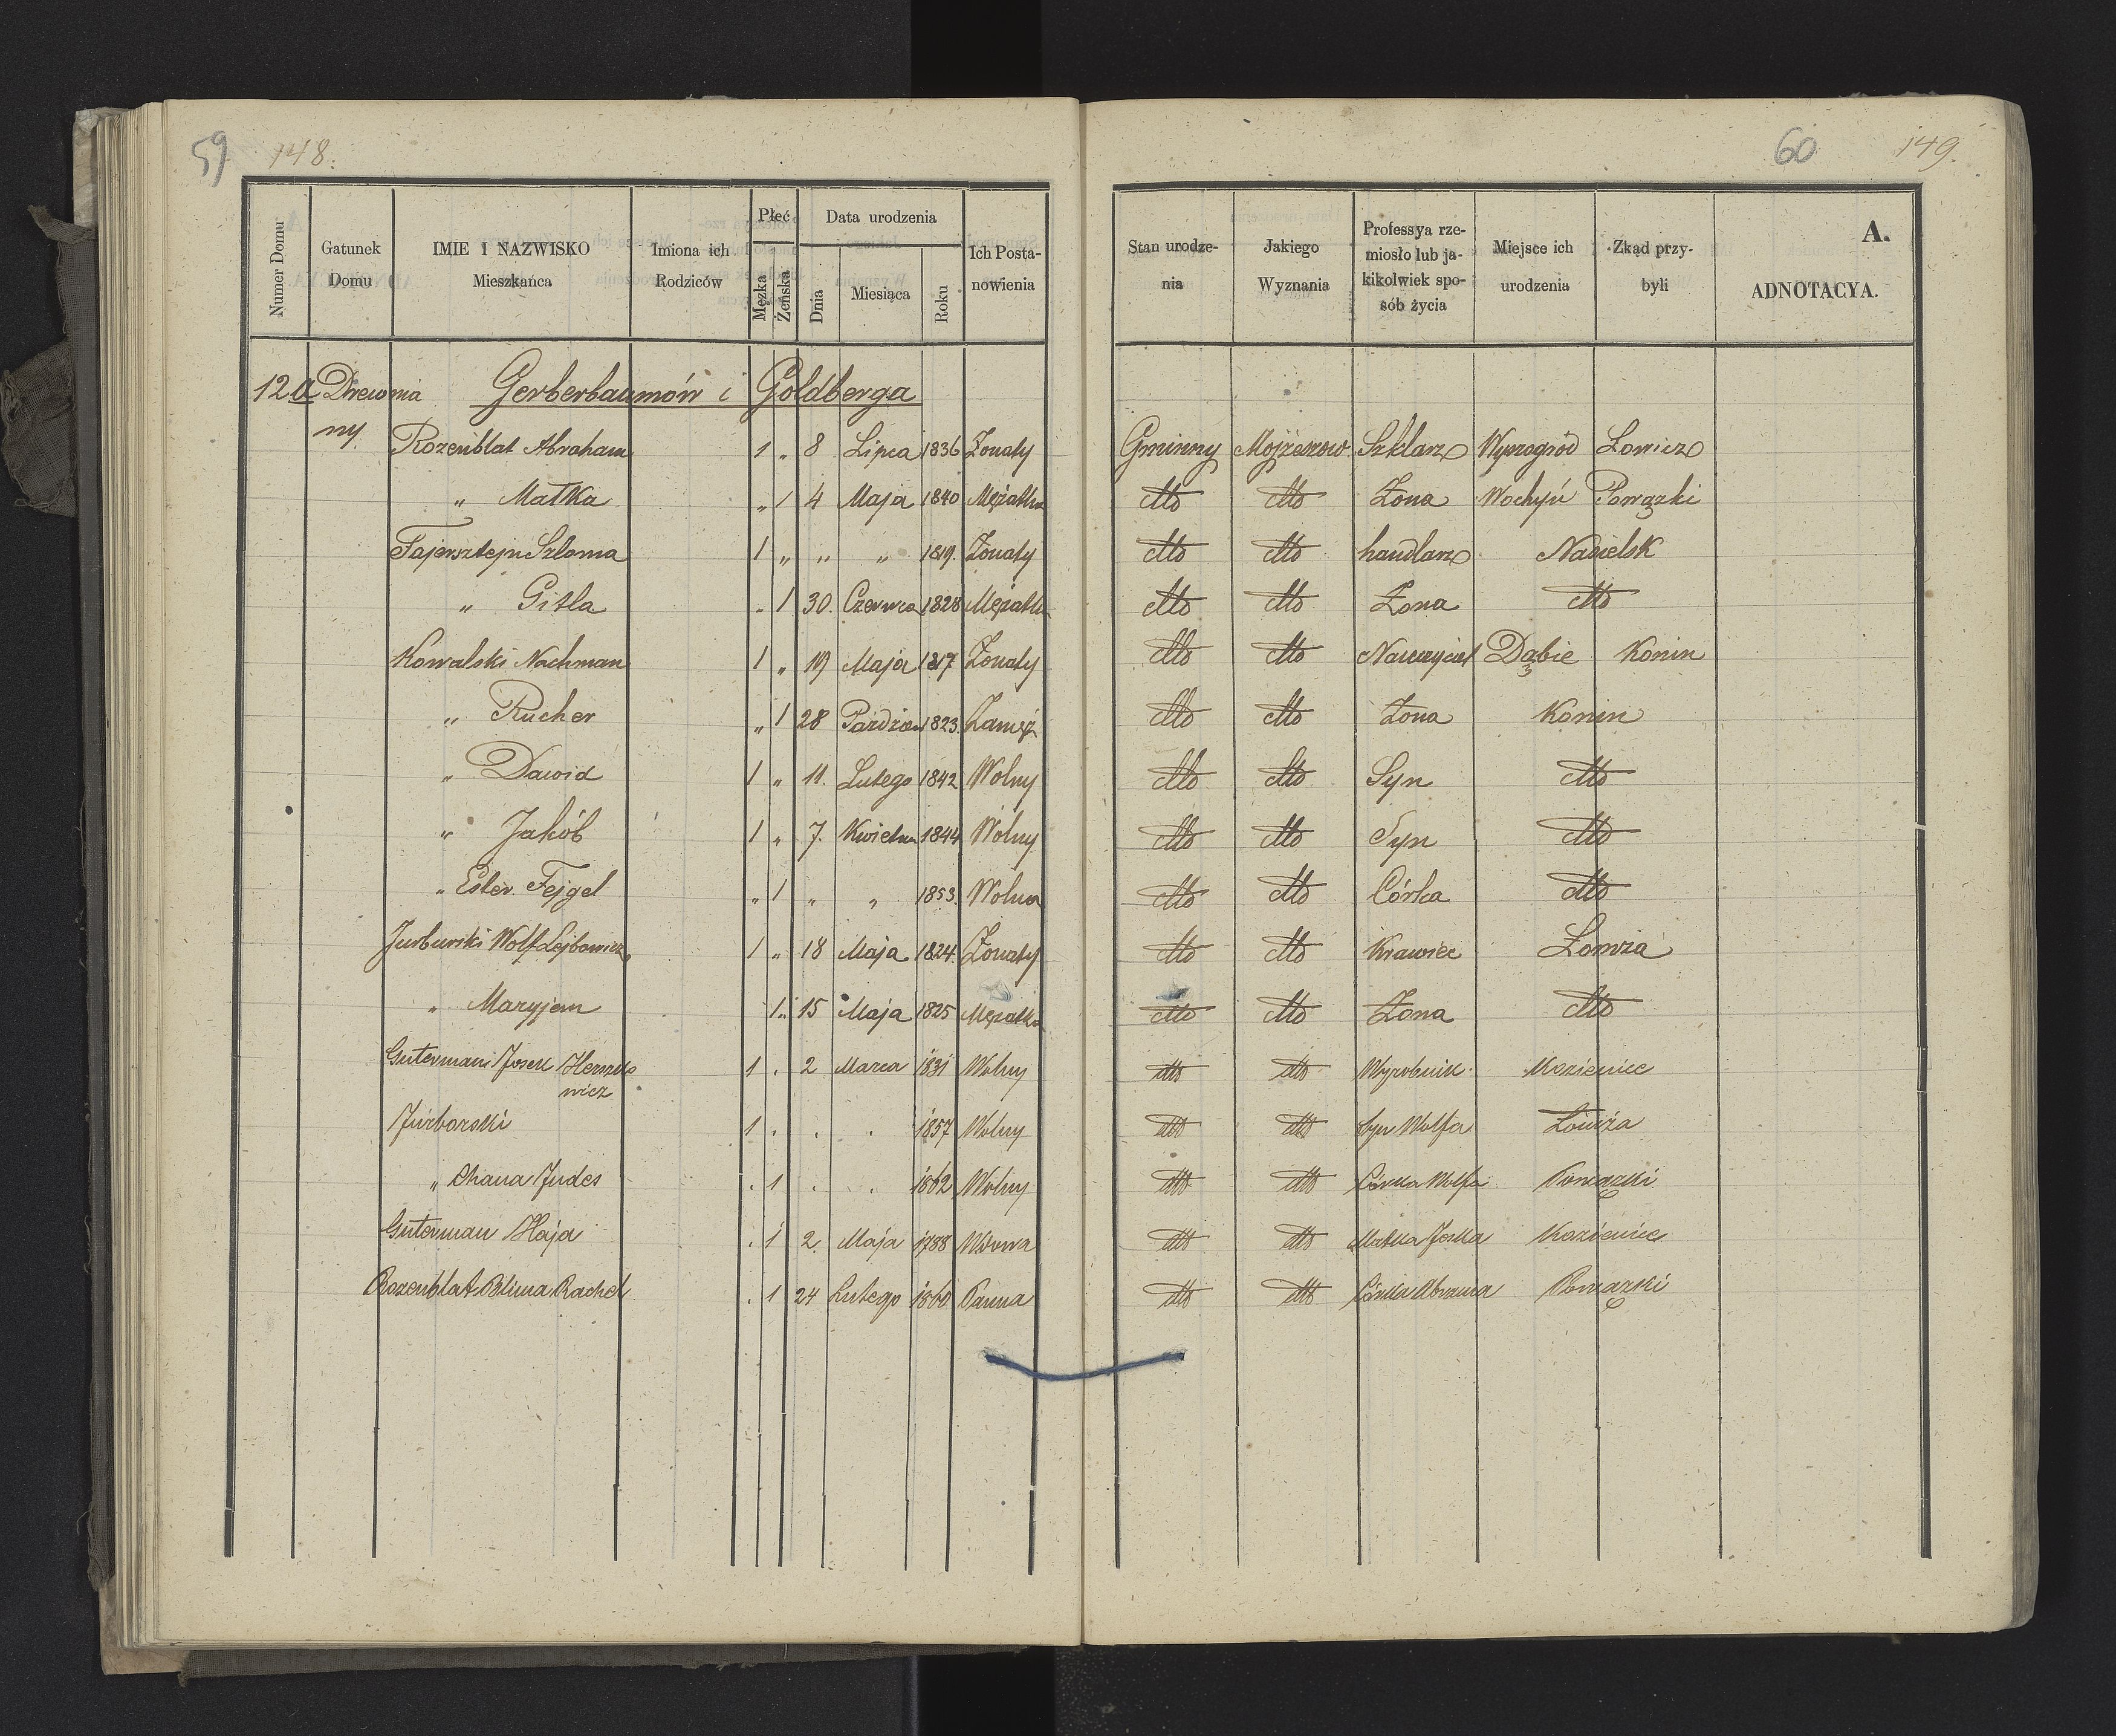 59 148.
60 149.
Numer Domu | Gatunek Domu | IMIE I NAZWISKO Mieszkańca | Imiona ich Rodziców | Płeć Męzka Żeńska | Data urodzenia Dnia Miesiąca Roku | Ich Postanowienia | Stan urodzenia | Jakiego Wyznania | Professya rzemiosło lub jakikolwiek sposób życia | Miejsce ich urodzenia | Zkąd przybyli | A. ADNOTACYA.
12 a Drewnia Gerberbaumów i Goldberga
ny.
Rozenblat Abraham 1 „ 8 Lipca 1836 Żonaty Gminny Mojżeszow. Szklarz Wyszogród Łowicz
„ Małka „ 1 4 Maja 1840 Mężatka dtto dtto Żona Wochyń Powązki
Fajersztejn Szloma 1 „ „ „ 1819. Żonaty dtto dtto handlarz Nasielsk
„ Gitla „ 1 30. Czerwca 1828 Mężatka dtto dtto Żona dtto
Kowalski Nachman 1 „ 19 Maja 1817 Żonaty dtto dtto Nauczyciel Dąbie Konin
„ Rucher „ 1 28 Paździer 1823. Zamęż dtto dtto Żona Konin
„ Dawid 1 „ 11. Lutego 1842 Wolny dtto dtto Syn dtto
„ Jakób 1 „ 7. Kwietnia 1844 Wolny dtto dtto Syn dtto
„ Ester Fejgel „ 1 „ „ 1853. Wolna dtto dtto Córka dtto
Jurburski Wolf Lejbowicz 1 „ 18 Maja 1824. Żonaty dtto dtto Krawiec Łomża
„ Maryjem 1 „ 15 Maja 1825 Mężatka dtto dtto Żona dtto
Guterman Josek Herszko 1 . 2 Marca 1831 Wolny dtto dtto Wyrobnik Kozienice
wicz
Jurborski 1 . . . 1857 Wolny dtto dtto Syn Wolfa Łomża
„ Chana Judes . 1 . . 1862 Wolny dtto dtto Córka Wolfa Powązki
Guterman Haja . 1 2. Maja 1788 Wdowa dtto dtto Matka Joska Kozienice
Rozenblat Blima Rachel . 1 24 Lutego 1860 Panna dtto dtto Córka Abrama Powązki